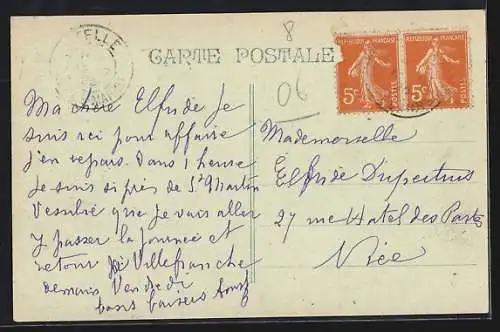 TELLE
8
CARTE POSTALE
06
REPUBLIQUE FRANÇAISE
5c POSTES
REPUBLIQUE FRANÇAISE
5c POSTES
Ma chère Elfride Je
suis ici pour affaire
J'en repars dans 1 heure
Je suis si près de St Martin
Vesubie que je vais aller
y passer la journée et
retour Villefranche
demain Vendredi
bons baisers
Mademoiselle
Elfride Dupertuis
27 rue Hotel des Postes
Nice